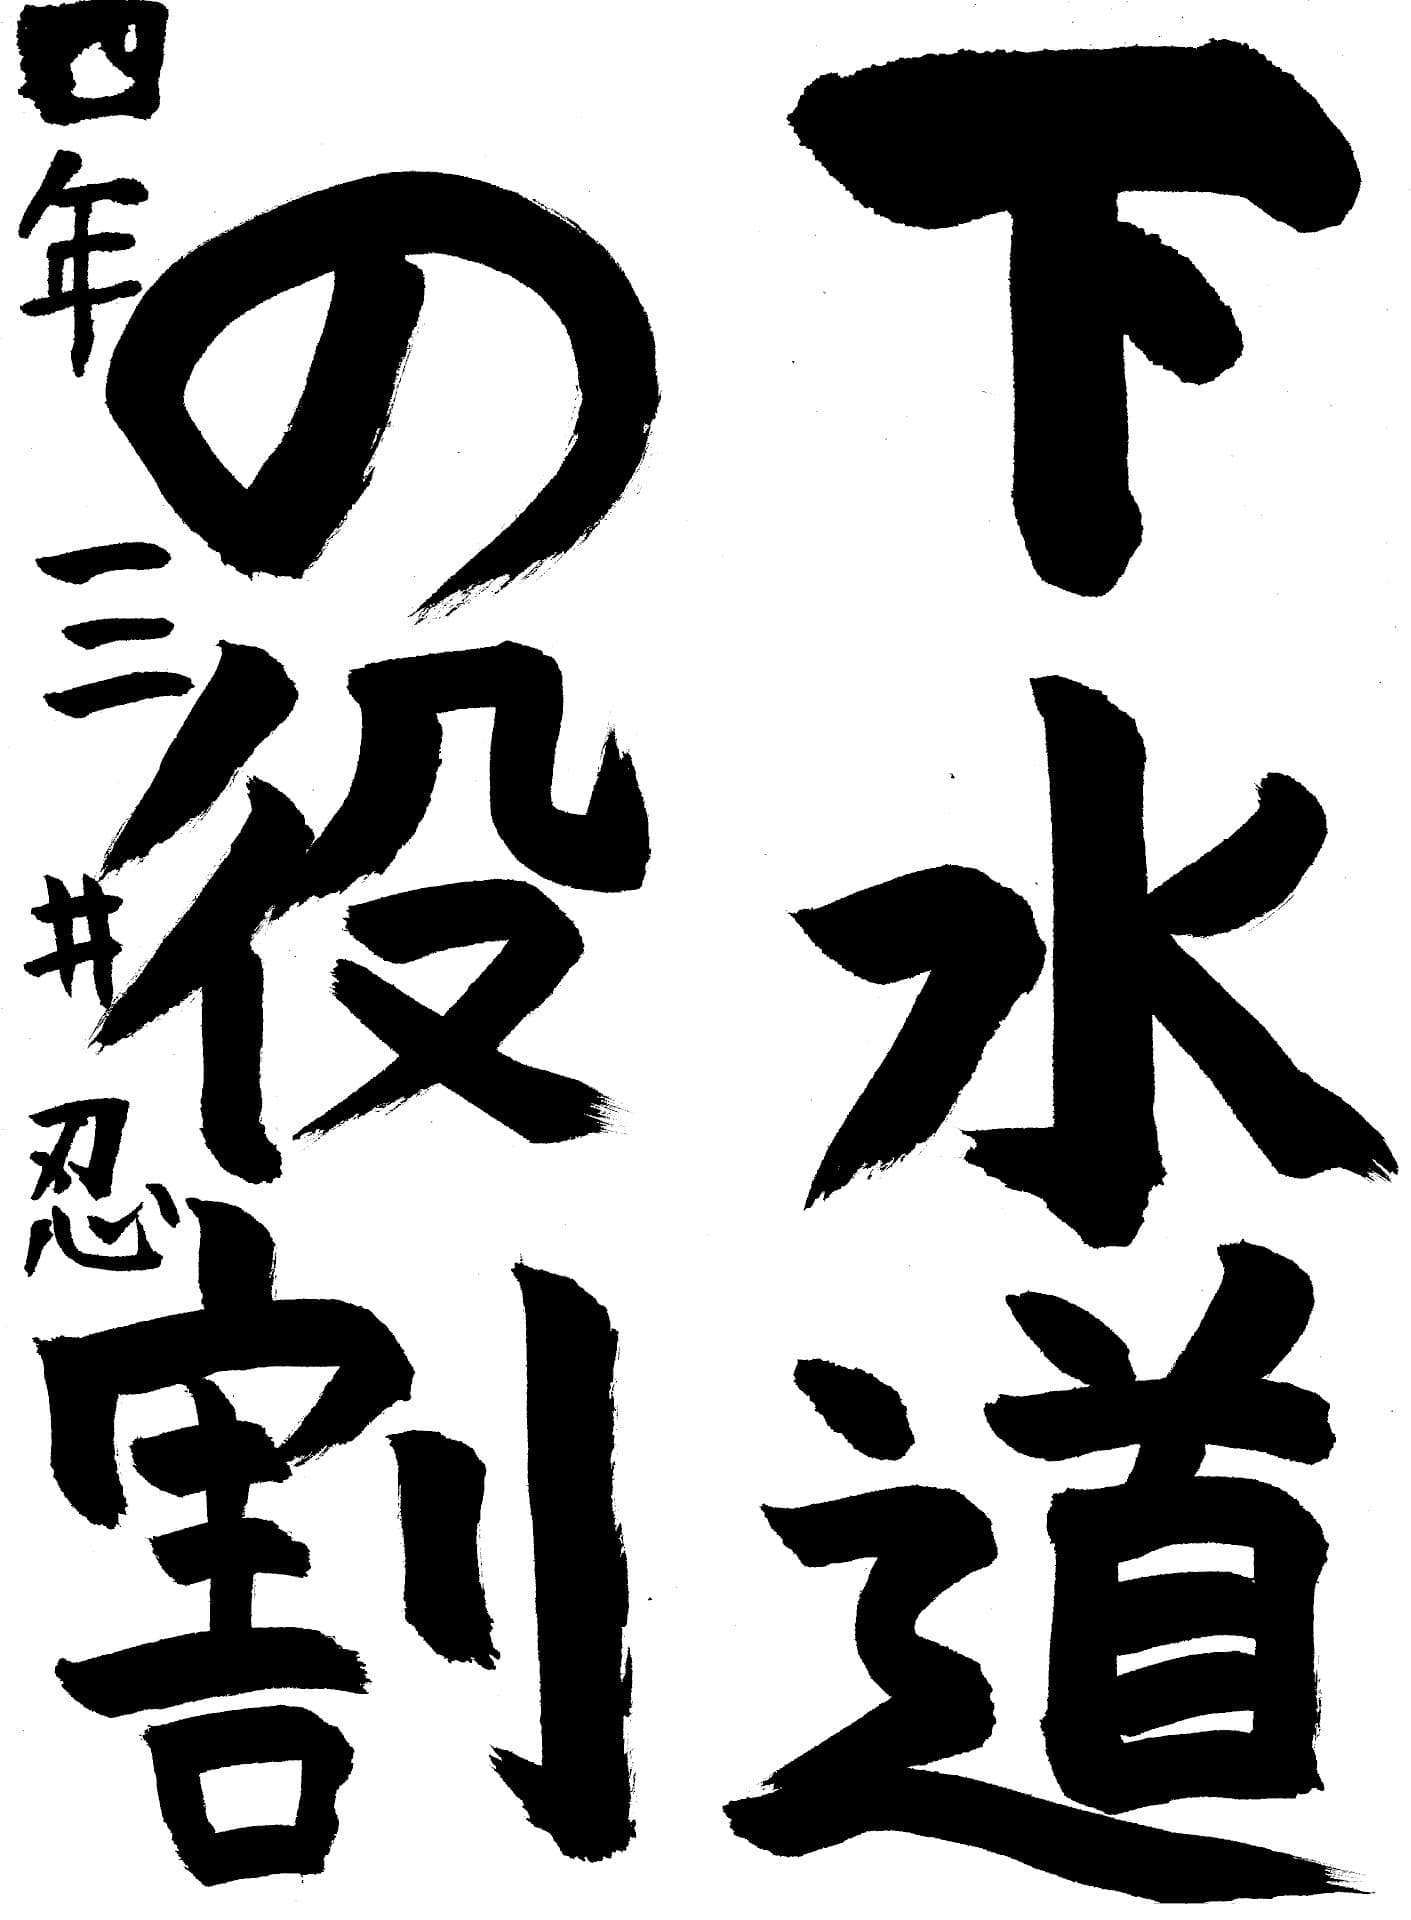 下水道
の役割
四年 三井 忍